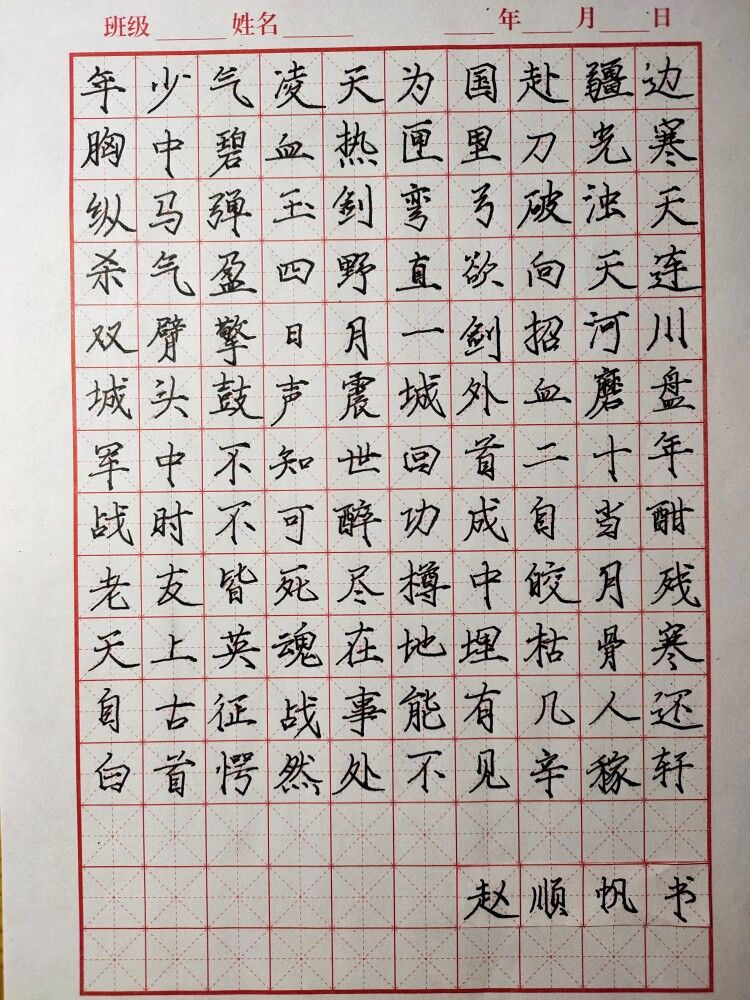 班级 姓名 年 月 日
年少气凌天为国赴疆边
胸中碧血热匣里刀光寒
纵马弹玉剑弯弓破浊天
杀气盈四野直欲向天连
双臂擎日月一剑招河川
城头鼓声震城外血磨盘
军中不知世回首二十年
战时不可醉功成自当酣
老友皆死尽樽中皎月残
天上英魂在地埋枯骨寒
自古征战事能有几人还
白首愕然处不见辛稼轩
赵顺帆书